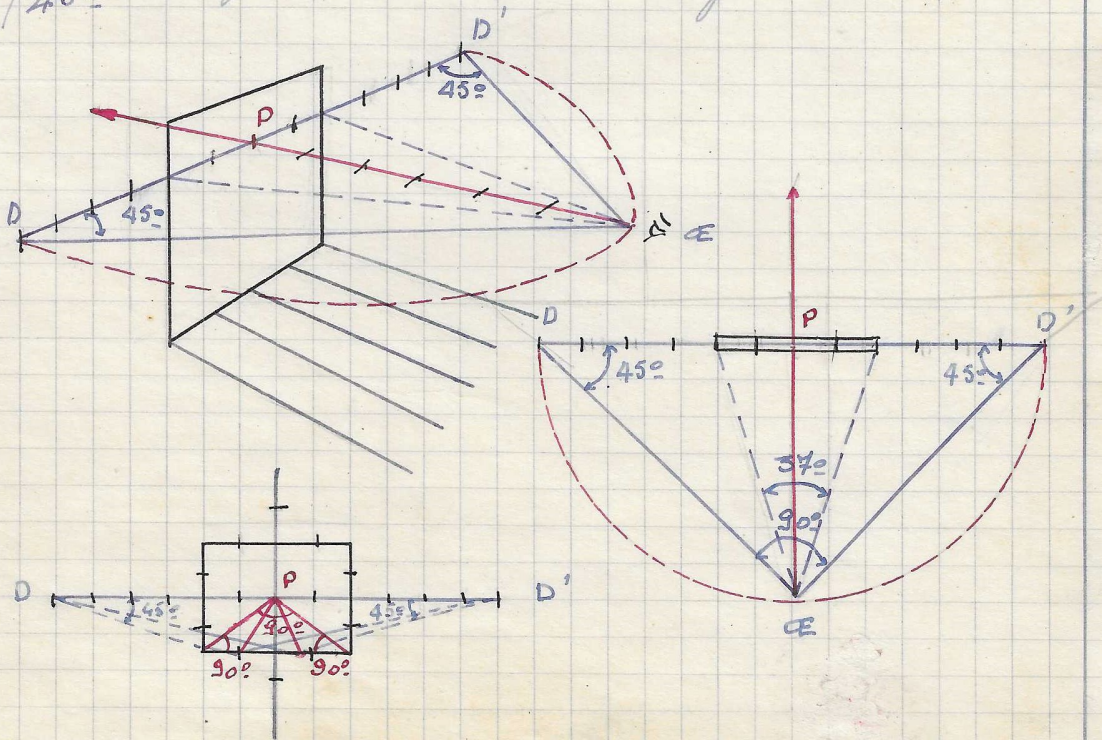 D'
45º
P
D
45º
Œ
D
P
D'
45º
45º
37º
90º
Œ
D
P
D'
45º
45º
90º
90º
90º